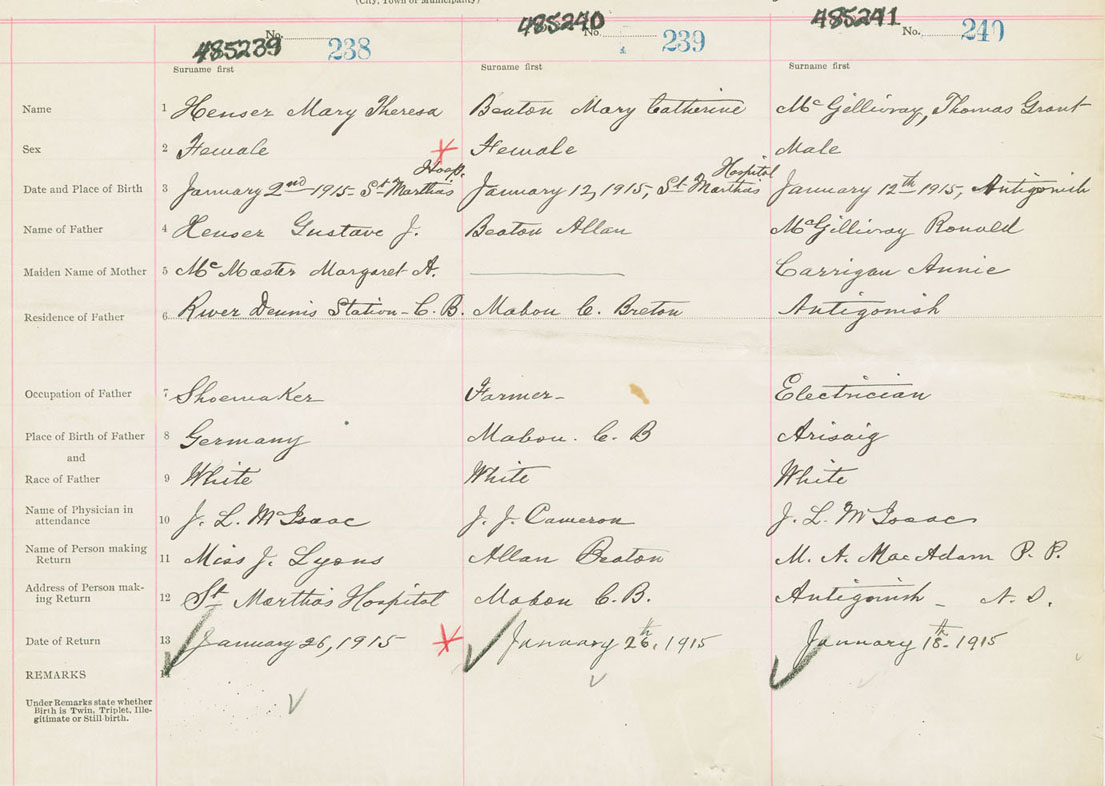 (City, Town or Municipality)
485239 No. 238 485240 No. 239 485241 No. 240
Surname first Surname first Surname first
Name 1 Henser Mary Theresa Beaton Mary Catherine McGillivray, Thomas Grant
Sex 2 Female Female Male
Hosp. Hospital
Date and Place of Birth 3 January 2nd 1915 - St Martha's January 12, 1915, St Martha's January 12th 1915, Antigonish
Name of Father 4 Henser Gustave J. Beaton Allan McGillivray Ronald
Maiden Name of Mother 5 McMaster Margaret A. Carrigan Annie
Residence of Father 6 River Dennis Station - C. B. Mabou C. Breton Antigonish
Occupation of Father 7 Shoemaker Farmer - Electrician
Place of Birth of Father 8 Germany Mabou. C. B Arisaig
and
Race of Father 9 White White White
Name of Physician in
attendance 10 J. L. McIsaac J. J. Cameron J. L. McIsaac
Name of Person making
Return 11 Miss J. Lyons Allan Beaton M. A. MacAdam P. P.
Address of Person mak-
ing Return 12 St Marthas Hospital Mabou C. B. Antigonish - N. S.
Date of Return 13 January 26, 1915 January 26th, 1915 January 18th - 1915
REMARKS 14
Under Remarks state whether
Birth is Twin, Triplet, Ille-
gitimate or Still-birth.